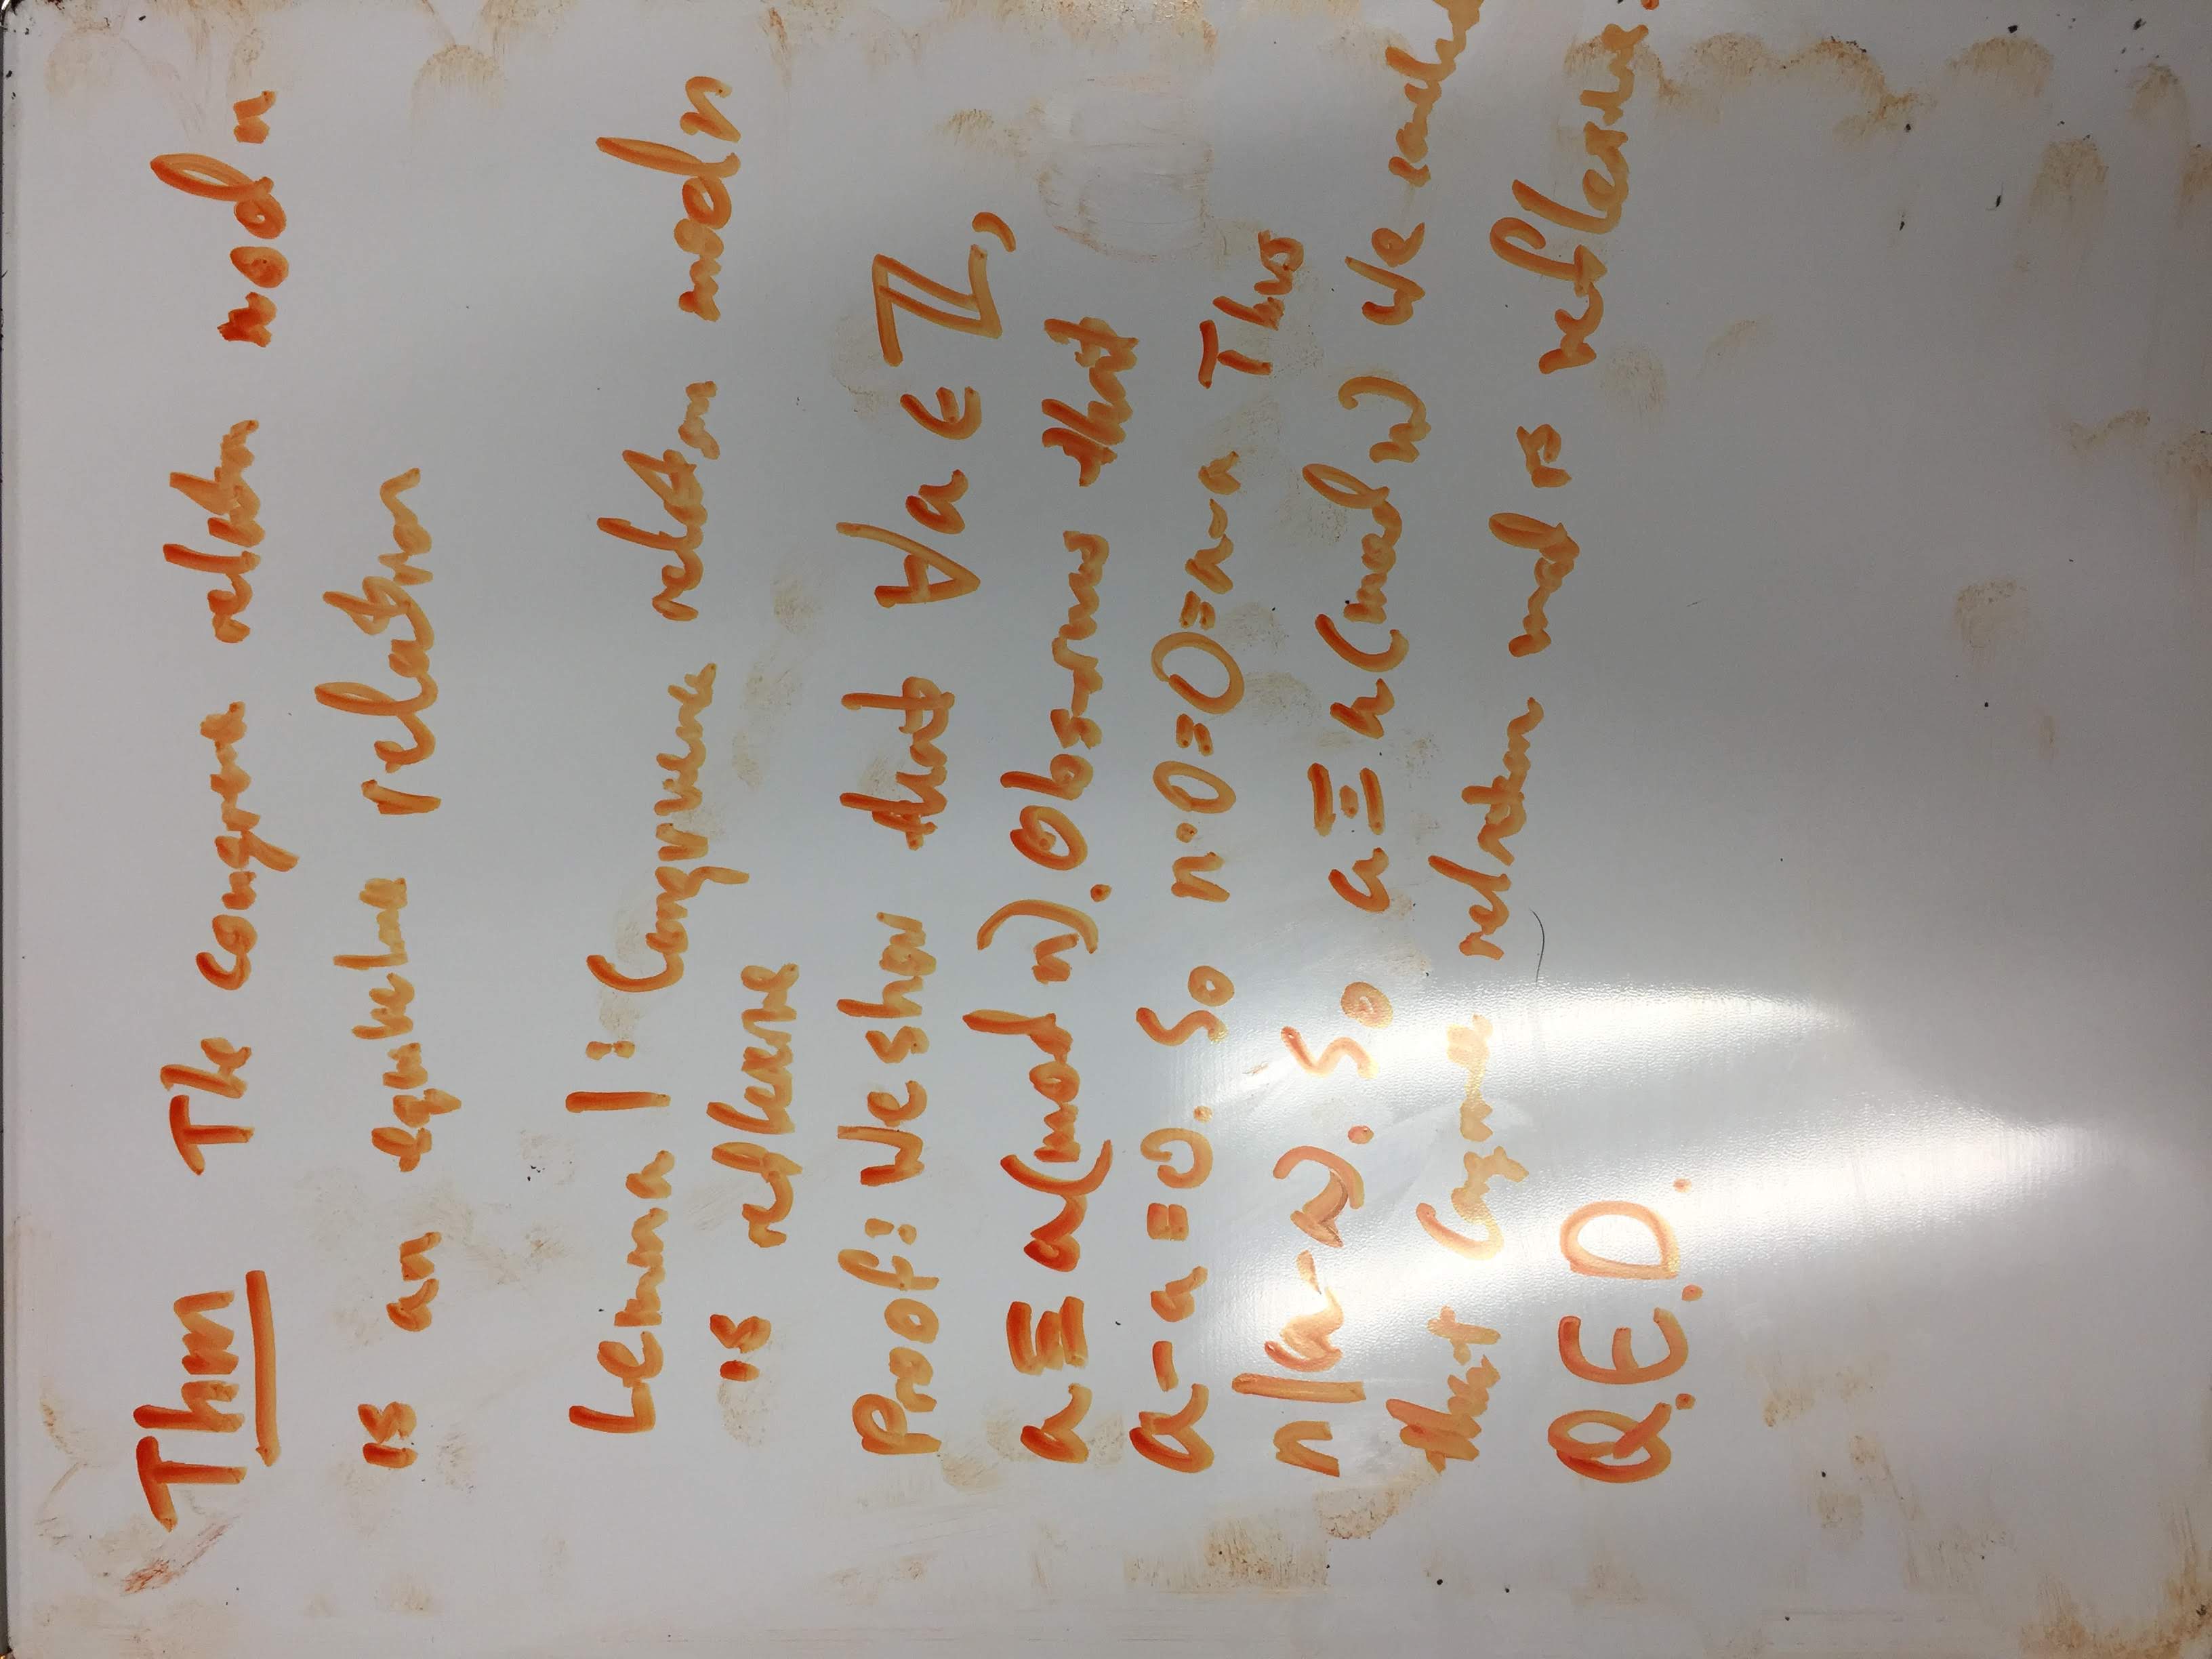 Thm The congruence relation mod n
is an equivalence relation
Lemma 1: Congruence relation mod n
is reflexive
Proof: We show that ∀a ∈ ℤ,
a ≡ a (mod n). Observe that
a - a = 0. So n·0 = 0 = a - a Thus
n|(a - a). So a ≡ a (mod n) We conclude
that Congruence relation mod is reflexive.
Q.E.D.